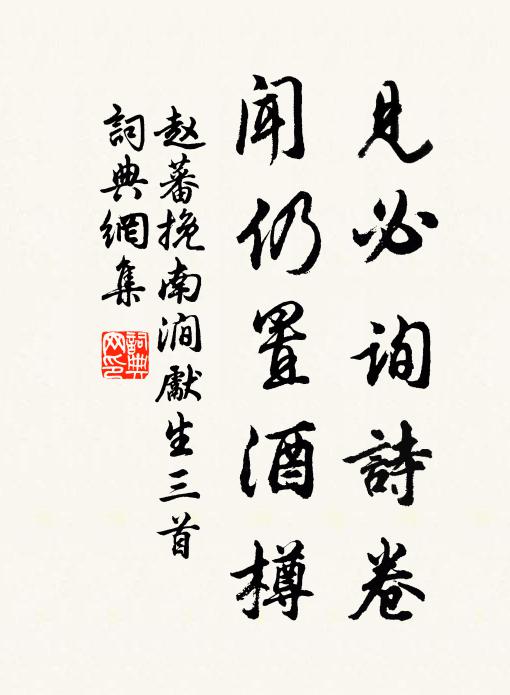 見必詢詩卷
聞仍置酒樽
赵蕃挽南澗獻生三首
詞典網集
詞典網印